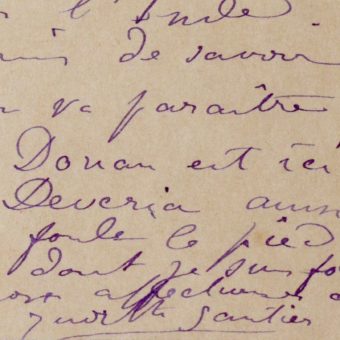 de savoir
va paraître
Douan est ici
Deveria aus
foule le pied
dont je suis fo
affectueus
Judith Gautier